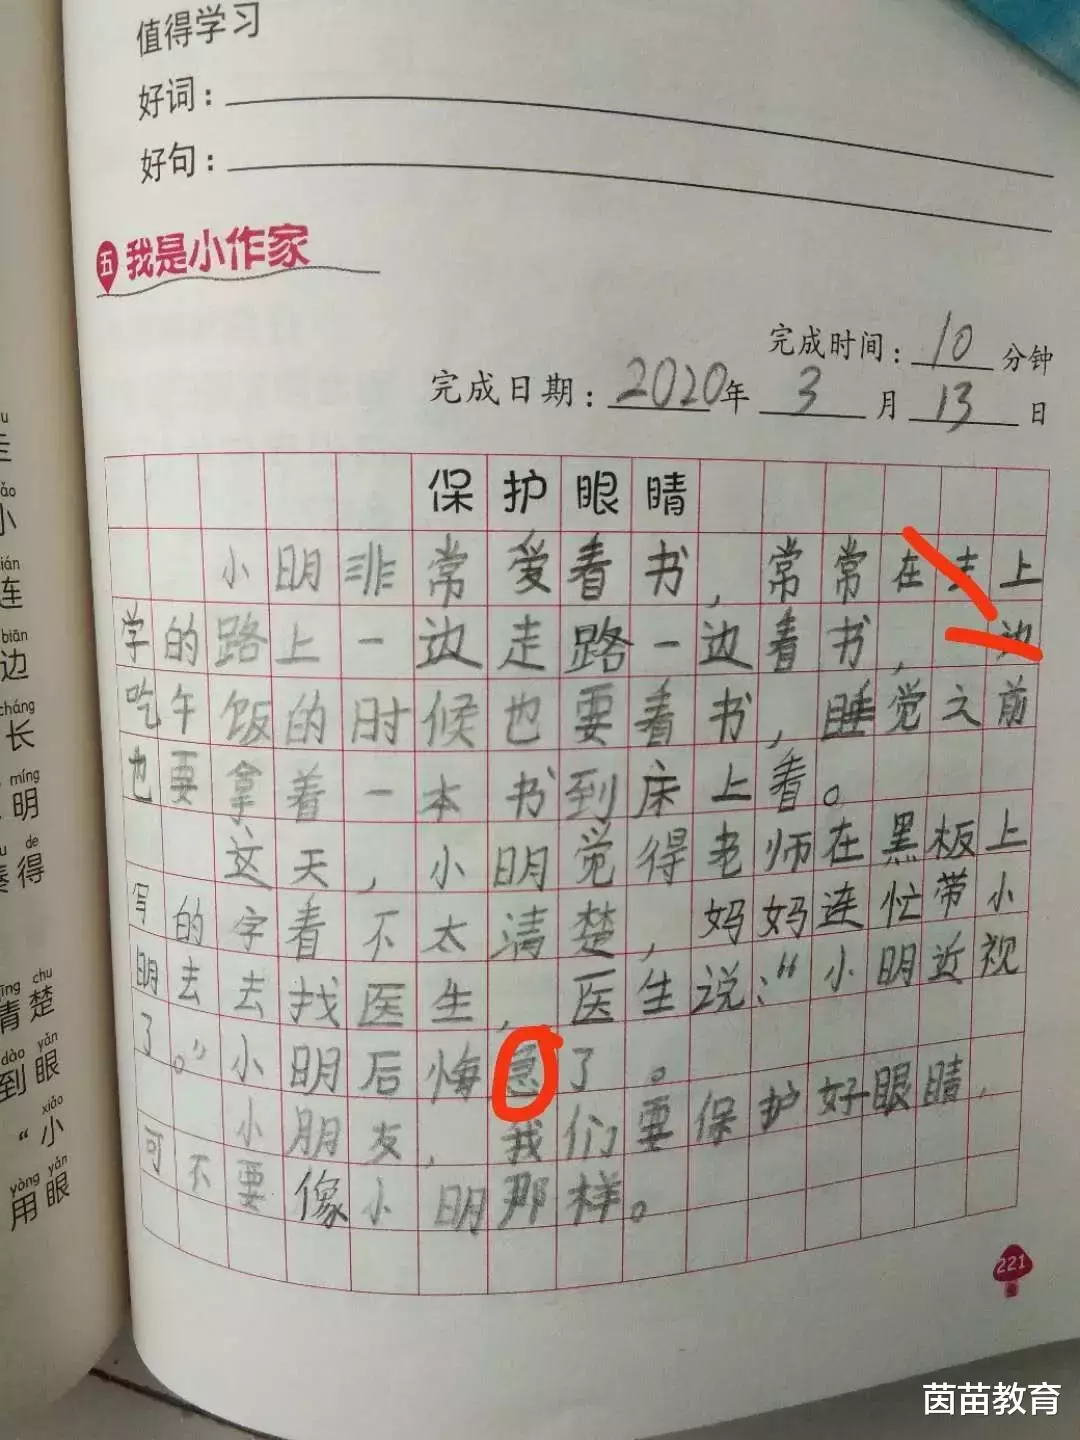 值得学习
好词：
好句：
五 我是小作家
完成时间：10分钟
完成日期：2020年3月13日
保护眼睛
小明非常爱看书，常常在去上
学的路上一边走路一边看书，一边
吃午饭的时候也要看书，睡觉之前
也要拿着一本书到床上看。
这天，小明觉得老师在黑板上
写的字看不太清楚，妈妈连忙带小
明去去找医生，医生说：“小明近视
了。”小明后悔急了。
小朋友，我们要保护好眼睛，
可不要像小明那样。
221
biān
边
cháng
长
míng
明
de
得
chu
清楚
dào yǎn
到眼
xiǎo
“小
yòng yǎn
用眼
茵苗教育